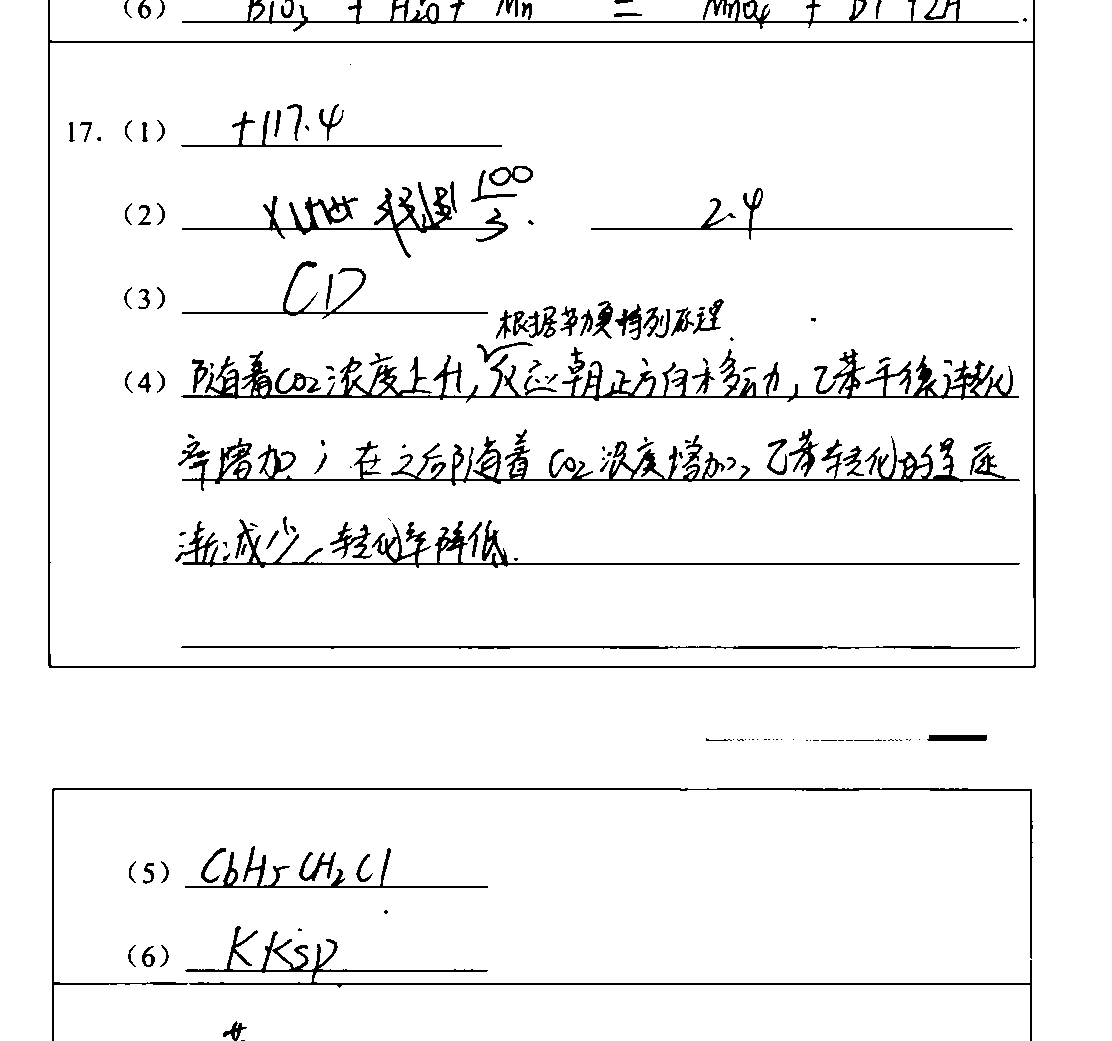 (6) BiO3 + H2O + Mn = MnO4 + Bi + 2H .
17. (1) +117.4
(2) 100/3 . 2.4
(3) CD
根据勒夏特列原理
(4) 随着CO2浓度上升, 反应朝正方向移动, 乙苯平衡转化
率增加; 在之后随着CO2浓度增加, 乙苯转化的量逐
渐减少, 转化率降低.
(5) C6H5CH2Cl
(6) KKsp